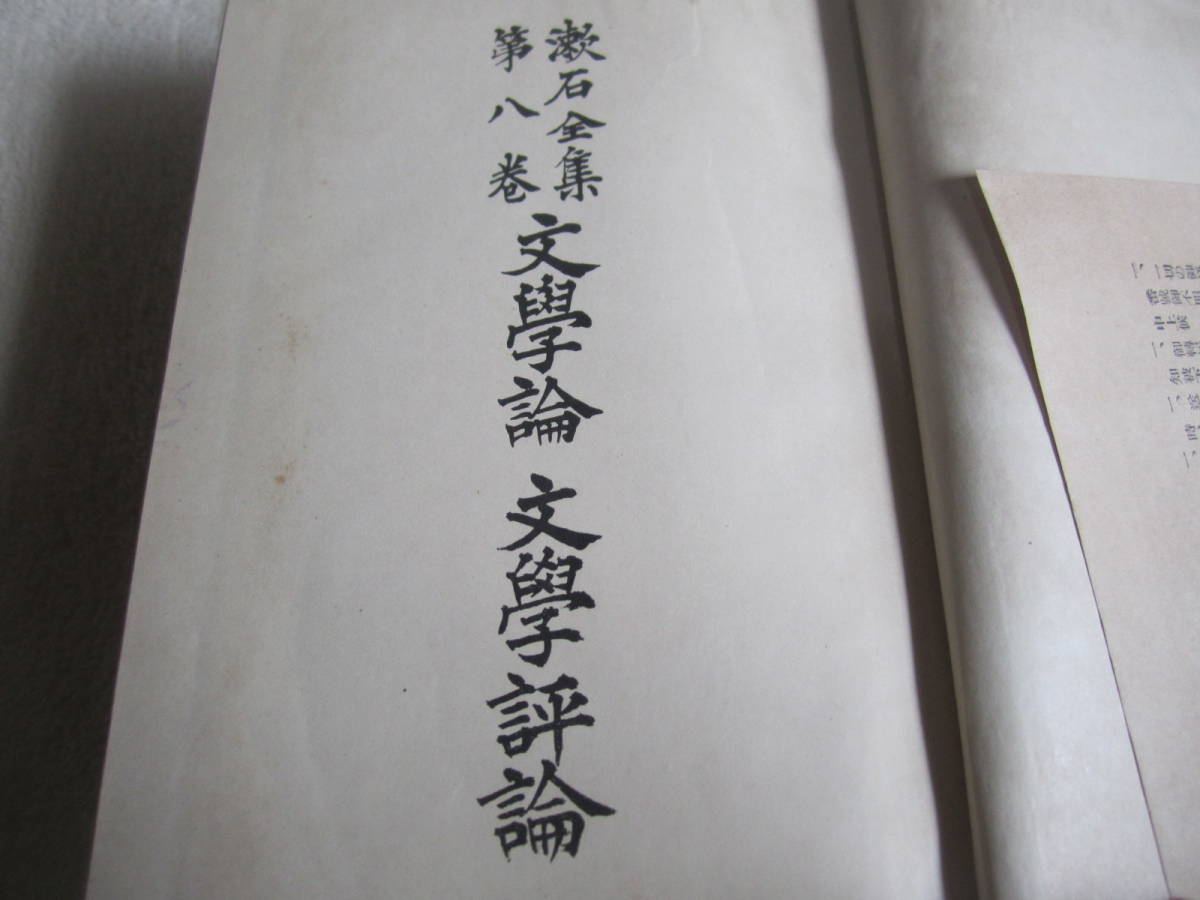 漱石全集
第八卷
文學論 文學評論